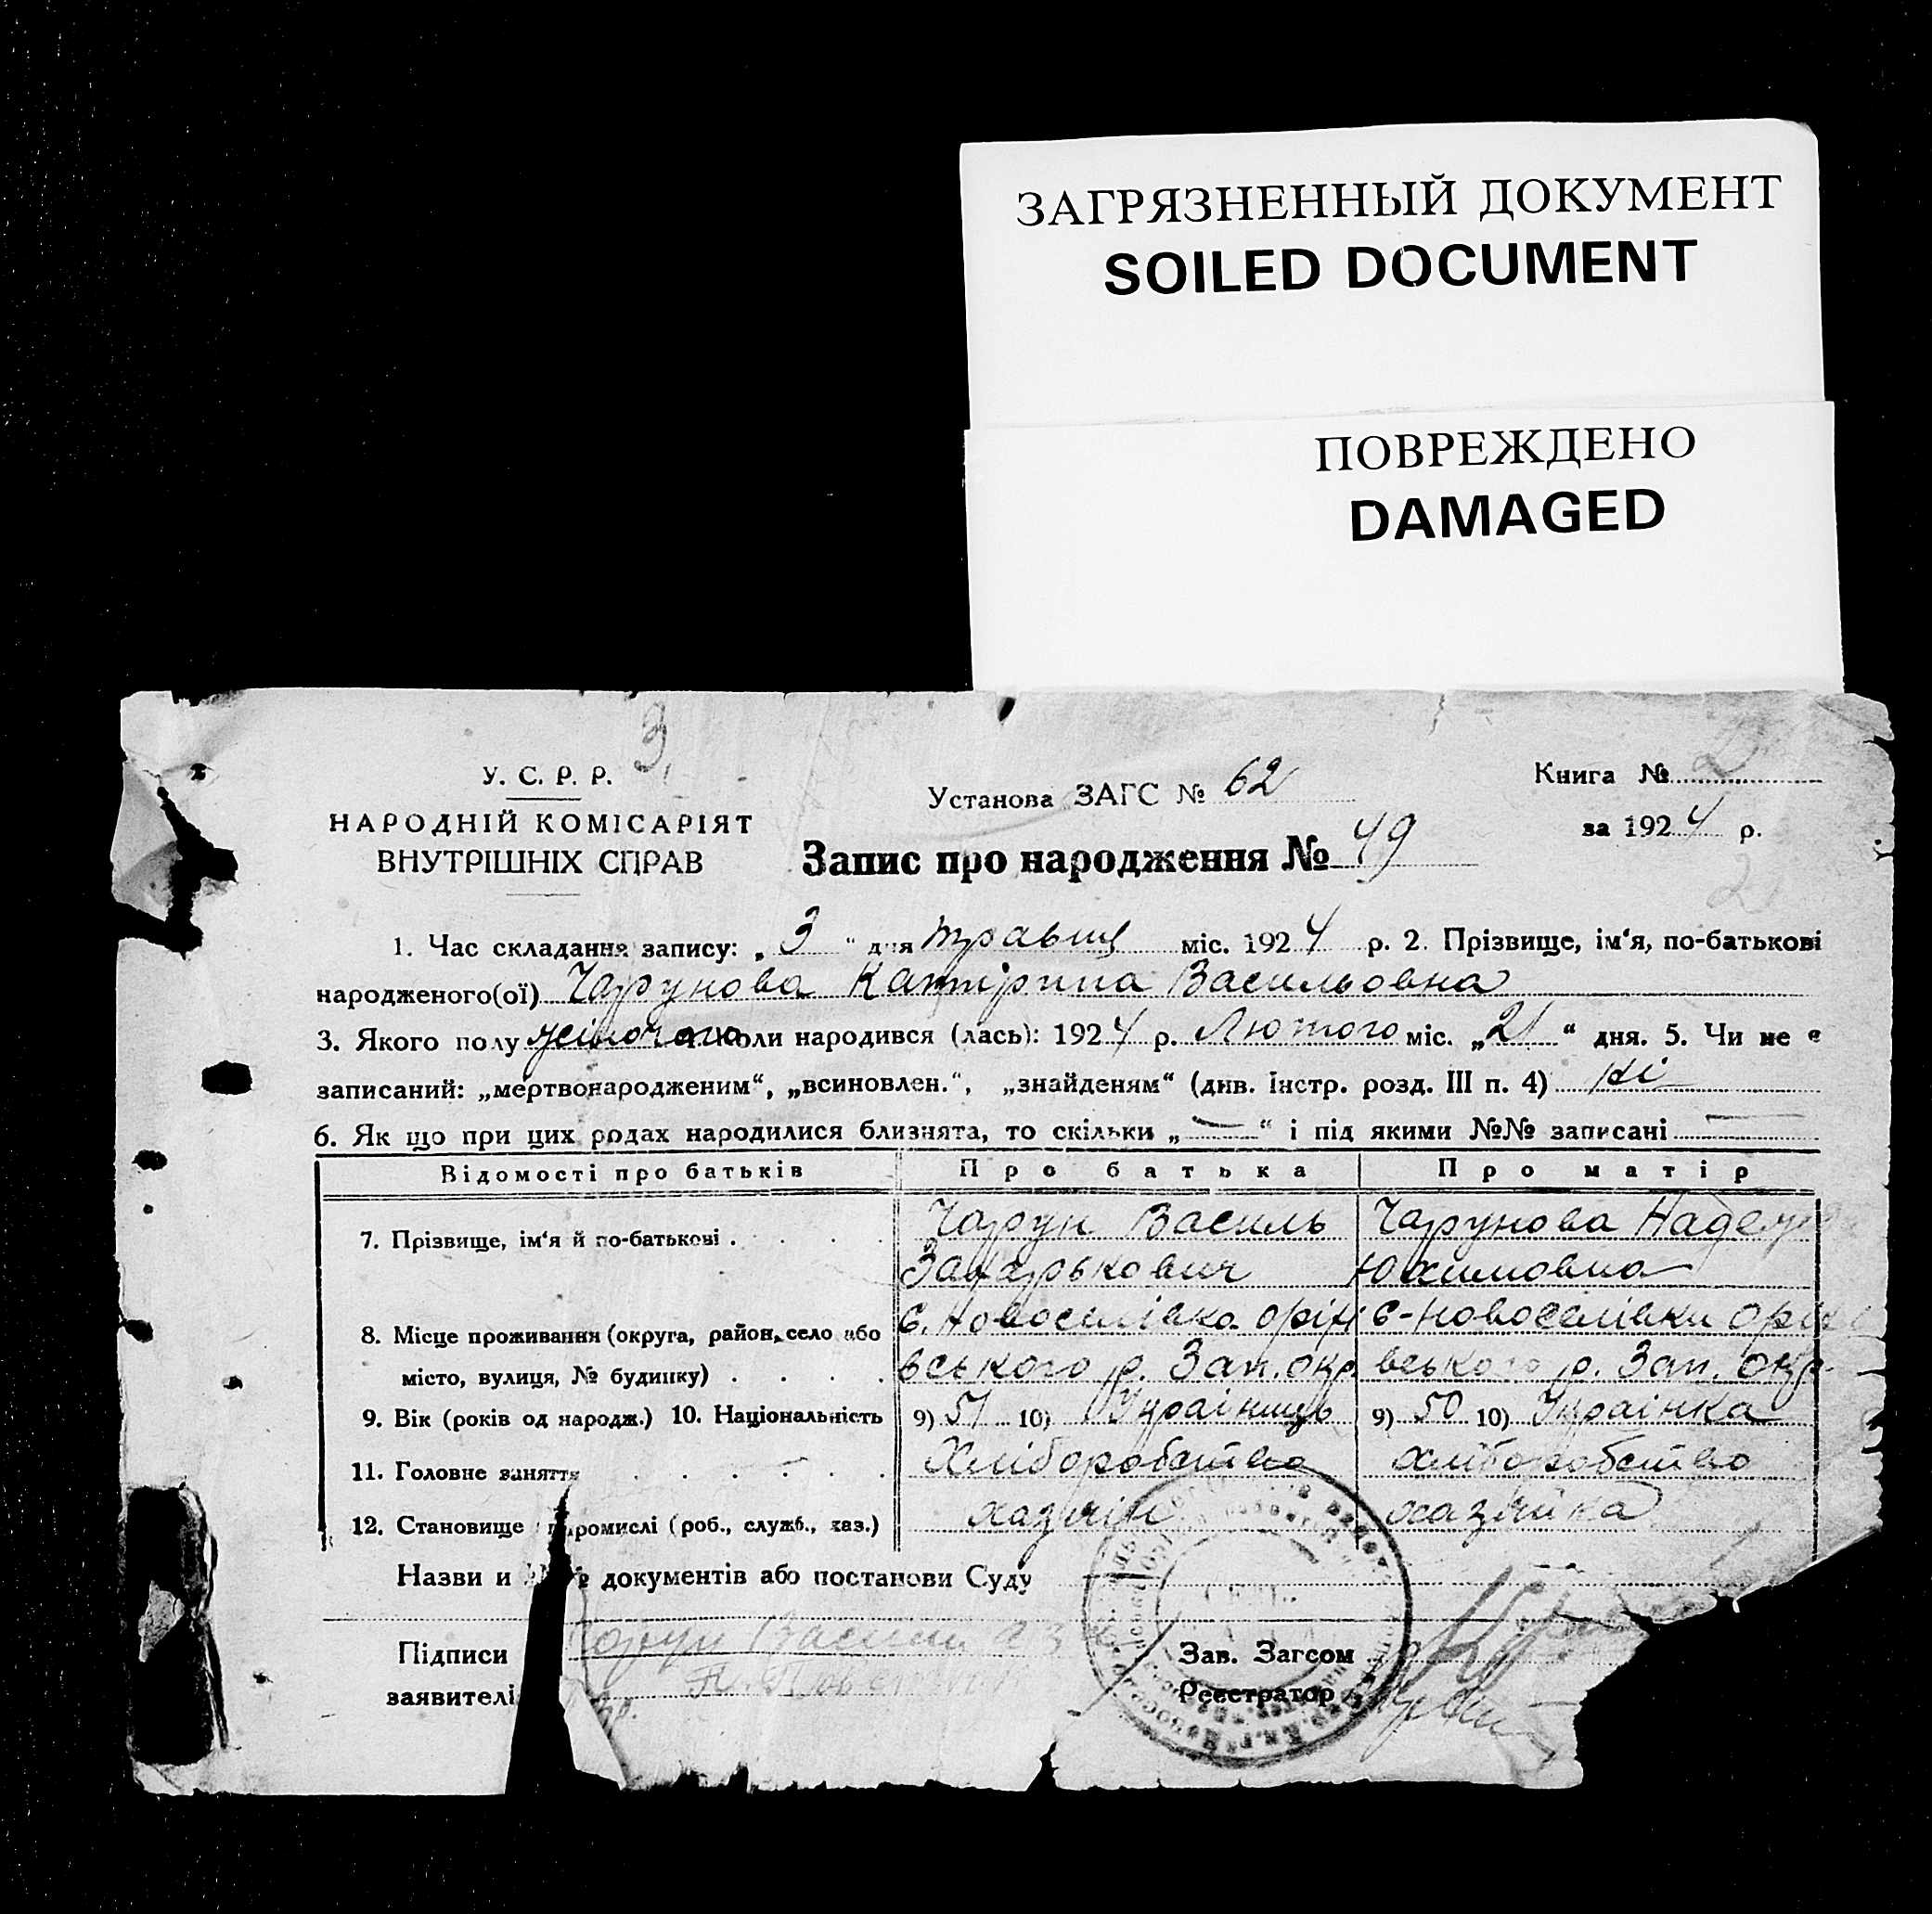 ЗАГРЯЗНЕННЫЙ ДОКУМЕНТ
SOILED DOCUMENT
ПОВРЕЖДЕНО
DAMAGED
3
У. С. Р. Р.
НАРОДНІЙ КОМІСАРІЯТ
ВНУТРІШНІХ СПРАВ
Установа ЗАГС № 62
Книга №
за 1924 р.
Запис про народження № 49
1. Час складання запису: „3“ дня травця міс. 1924 р. 2. Прізвище, ім‘я, по-батькові
народженого(ої) Чарунова Катірина Васильовна
3. Якого полу жіночого коли народився (лась): 1924 р. Лютого міс. „21“ дня. 5. Чи не є
записаний: „мертвонародженим“, „всиновлен.“, „знайденям“ (див. Інстр. розд. III п. 4) Ні
6. Як що при цих родах народилися близнята, то скільки „—“ і під якими №№ записані —
Відомості про батьків Про батька Про матір
7. Прізвище, ім‘я й по-батькові . . . . Чарун Василь Чарунова
Захарькович Юхимовна
8. Місце проживання (округа, район, село або с. Новоселівка оріхі с-Новоселівки оріхі
місто, вулиця, № будинку) . . . . вського р. Зап. окр. вського р. Зап. окр.
9. Вік (років од народж.) 10. Національність 9) 51 10) Українць 9) 50 10) Українка
11. Головне заняття . . . . . . Хліборобство хліборобство
12. Становище в промислі (роб., служб., хаз.) хазяін хазяйка
Назви и №№ документів або постанови Суду
Підписи Чарун
заявителі
Зав. Загсом
Реєстратор